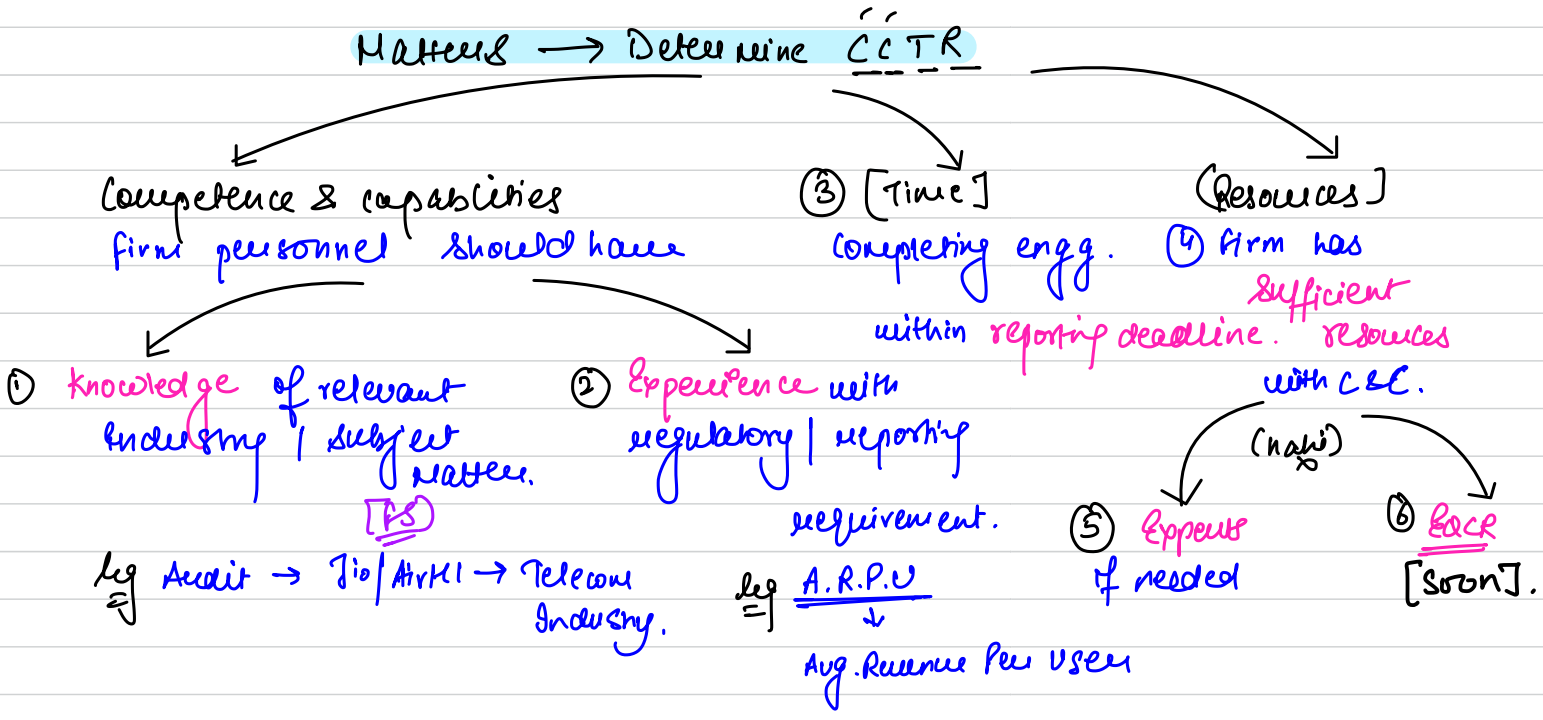 Matters → Determine CCTR
Competence & capabilities
firm personnel should have
① Knowledge of relevant
Industry / subject
Matter.
[FS]
eg Audit → Jio/Airtel → Telecom
Industry.
② Experience with
regulatory / reporting
requirement.
eg A.R.P.U
↓
Avg. Revenue Per User
③ [Time]
Completing engg.
within reporting deadline.
(Resources]
④ firm has
sufficient
resources
with C&C.
(nahi)
⑤ Experts
If needed
⑥ EQCR
[Soon].